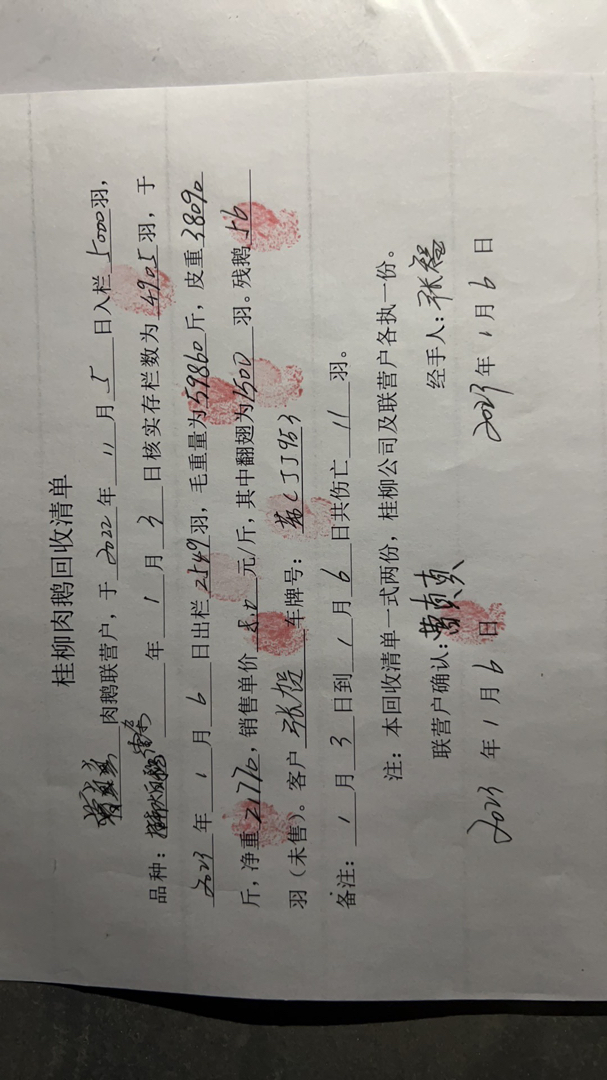 桂柳肉鹅回收清单
曹真真 肉鹅联营户，于 2022 年 11 月 5 日入栏 5000 羽，
品种： 年 1 月 3 日核实存栏数为 4905 羽，于
2023 年 1 月 6 日出栏 2549 羽，毛重量为 59860 斤，皮重 38090
斤，净重 21770，销售单价 元/斤，其中翻翅为 1500 羽。残鹅 56
羽（未售）。客户 张 车牌号： JJ953
备注： 1 月 3 日到 1 月 6 日共伤亡 11 羽。
注：本回收清单一式两份，桂柳公司及联营户各执一份。
联营户确认：曹真真 经手人：张
2023 年 1 月 6 日 2023 年 1 月 6 日